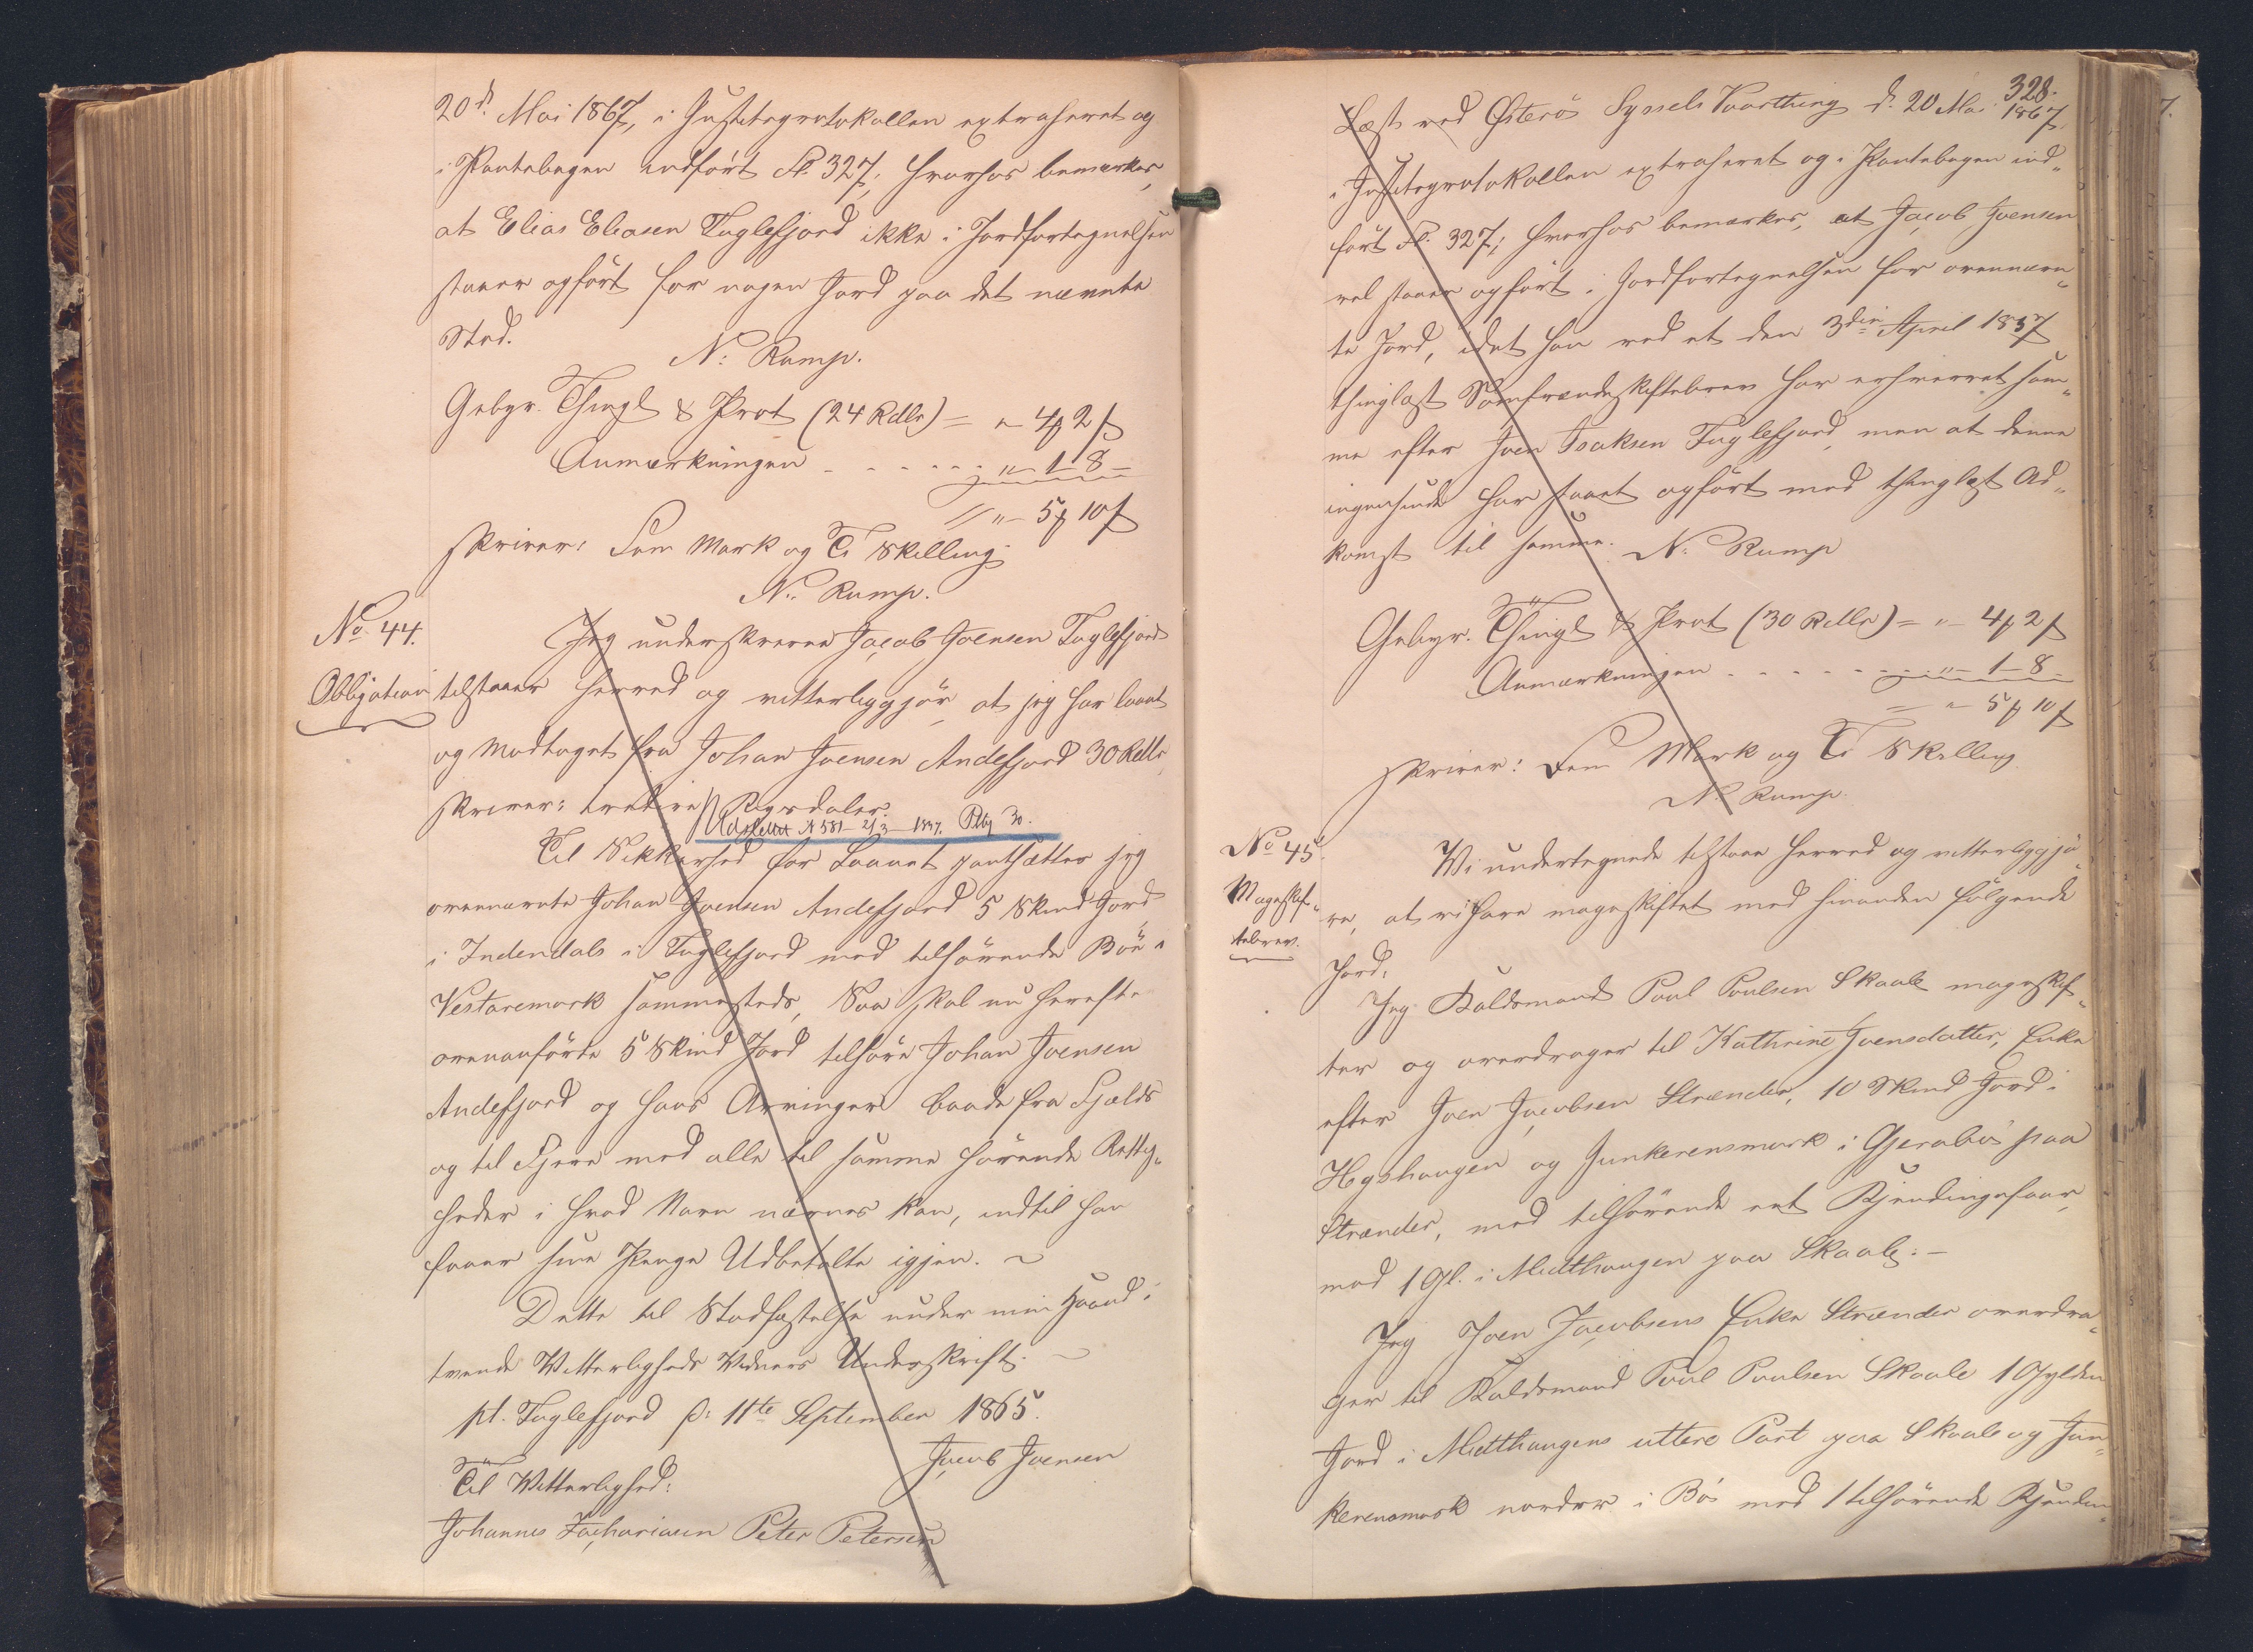 20d. Mai 1867, i Justitsprotokollen extraheret og
i Pantebogen indført Fl. 327; hvorhos bemærkes,
at Elias Eliasen Fuglefjord ikke i Jordfortegnelsen
staaer opført for nogen Jord paa det nævnte
Sted.
N: Rump.
Gebyr. Thingl & Prot (24 Rdlr) = " 4 ₰ 2 ß
Anmærkningen - - - - - - " - 1 - 8 -
" - 5 ₰ 10 ß
skriver: Fem Mark og Ti Skilling
N: Rump.
No. 44.
Obligation
Jeg underskrevne Jacob Joensen Fuglefjord
tilstaaer herved og vitterliggjör, at jeg har laant
og Modtaget fra Johan Joensen Andefjord 30 Rdlr,
skriver: tredive Rigsdaler.
Udslettet N 581 - 2/3 - 1937. Ptbg 30.
Til Sikkerhed for Laanet pantsætter jeg
ovennævnte Johan Joensen Andefjord 5 Skind Jord
i Indendals i Fuglefjord med tilhörende Böe i
Vestaremark sammesteds, Saa skal nu herefter
ovenanförte 5 Skind Jord tilhöre Johan Joensen
Andefjord og hans Arvinger baade fra Fjelds
og til Fjere med alle til samme hörende Rettig„
heder i hvad Navn nævnes kan, indtil han
faaer sine Penge Udbetalte igjen. ~
Dette til Stadfæstelse under min Haand i
tvende Vitterligheds Vidners Underskrift. ~
pt. Fuglefjord d: 11te September 1865.
Jacob Joensen
Til Vitterlighed:
Johannes Zachariasen Peter Petersen
328.
Læst ved Österö Syssels Vaarthing d. 20 Mai 1867,
i Justitsprotokollen extraheret og i Pantebogen ind„
fört Fl. 327; hvorhos bemærkes, at Jacob Joensen
vel staaer opfört i Jordfortegnelsen for ovennævn„
te Jord, idet han ved et den 3die April 1837
thinglæst Samfrændeskiftebrev har erhvervet sam„
me efter Joen Isaksen Fuglefjord, men at denne
ingensinde har staaet opfört med thinglæst Ad„
komst til samme. N: Rump
Gebyr. Thingl & Prot (30 Rdlr) = " - 4 ₰ 2 ß
Anmærkningen - - - - - - " - 1 - 8 -
" - 5 ₰ 10 ß
skriver: Fem Mark og Ti Skilling.
N: Rump.
No 45.
Mageskif„
tebrev.
Vi undertegnede tilstaae herved og vitterliggjö„
re, at vi have mageskiftet med hinanden fölgende
Jord:
Jeg Kaldsmand Poul Poulsen Skaale mageskif„
ter og overdrager til Kathrine Joensdatter, Enke
efter Joen Jacobsen Strænder, 10 Skind Jord i
Hogshaugen og Junkerensmark i Gjerabö paa
Strænder, med tilhörende eet Kjendingsfaar,
mod 1 Gl. i Midthaugen paa Skaale. -
Jeg Joen Jacobsens Enke Strænder overdra„
ger til Kaldsmand Poul Poulsen Skaale 1 Gylden
Jord i Midthaugens uttere Part paa Skaale og Jun„
kerensmark norder i Bö med 1 tilhörende Kjendin„